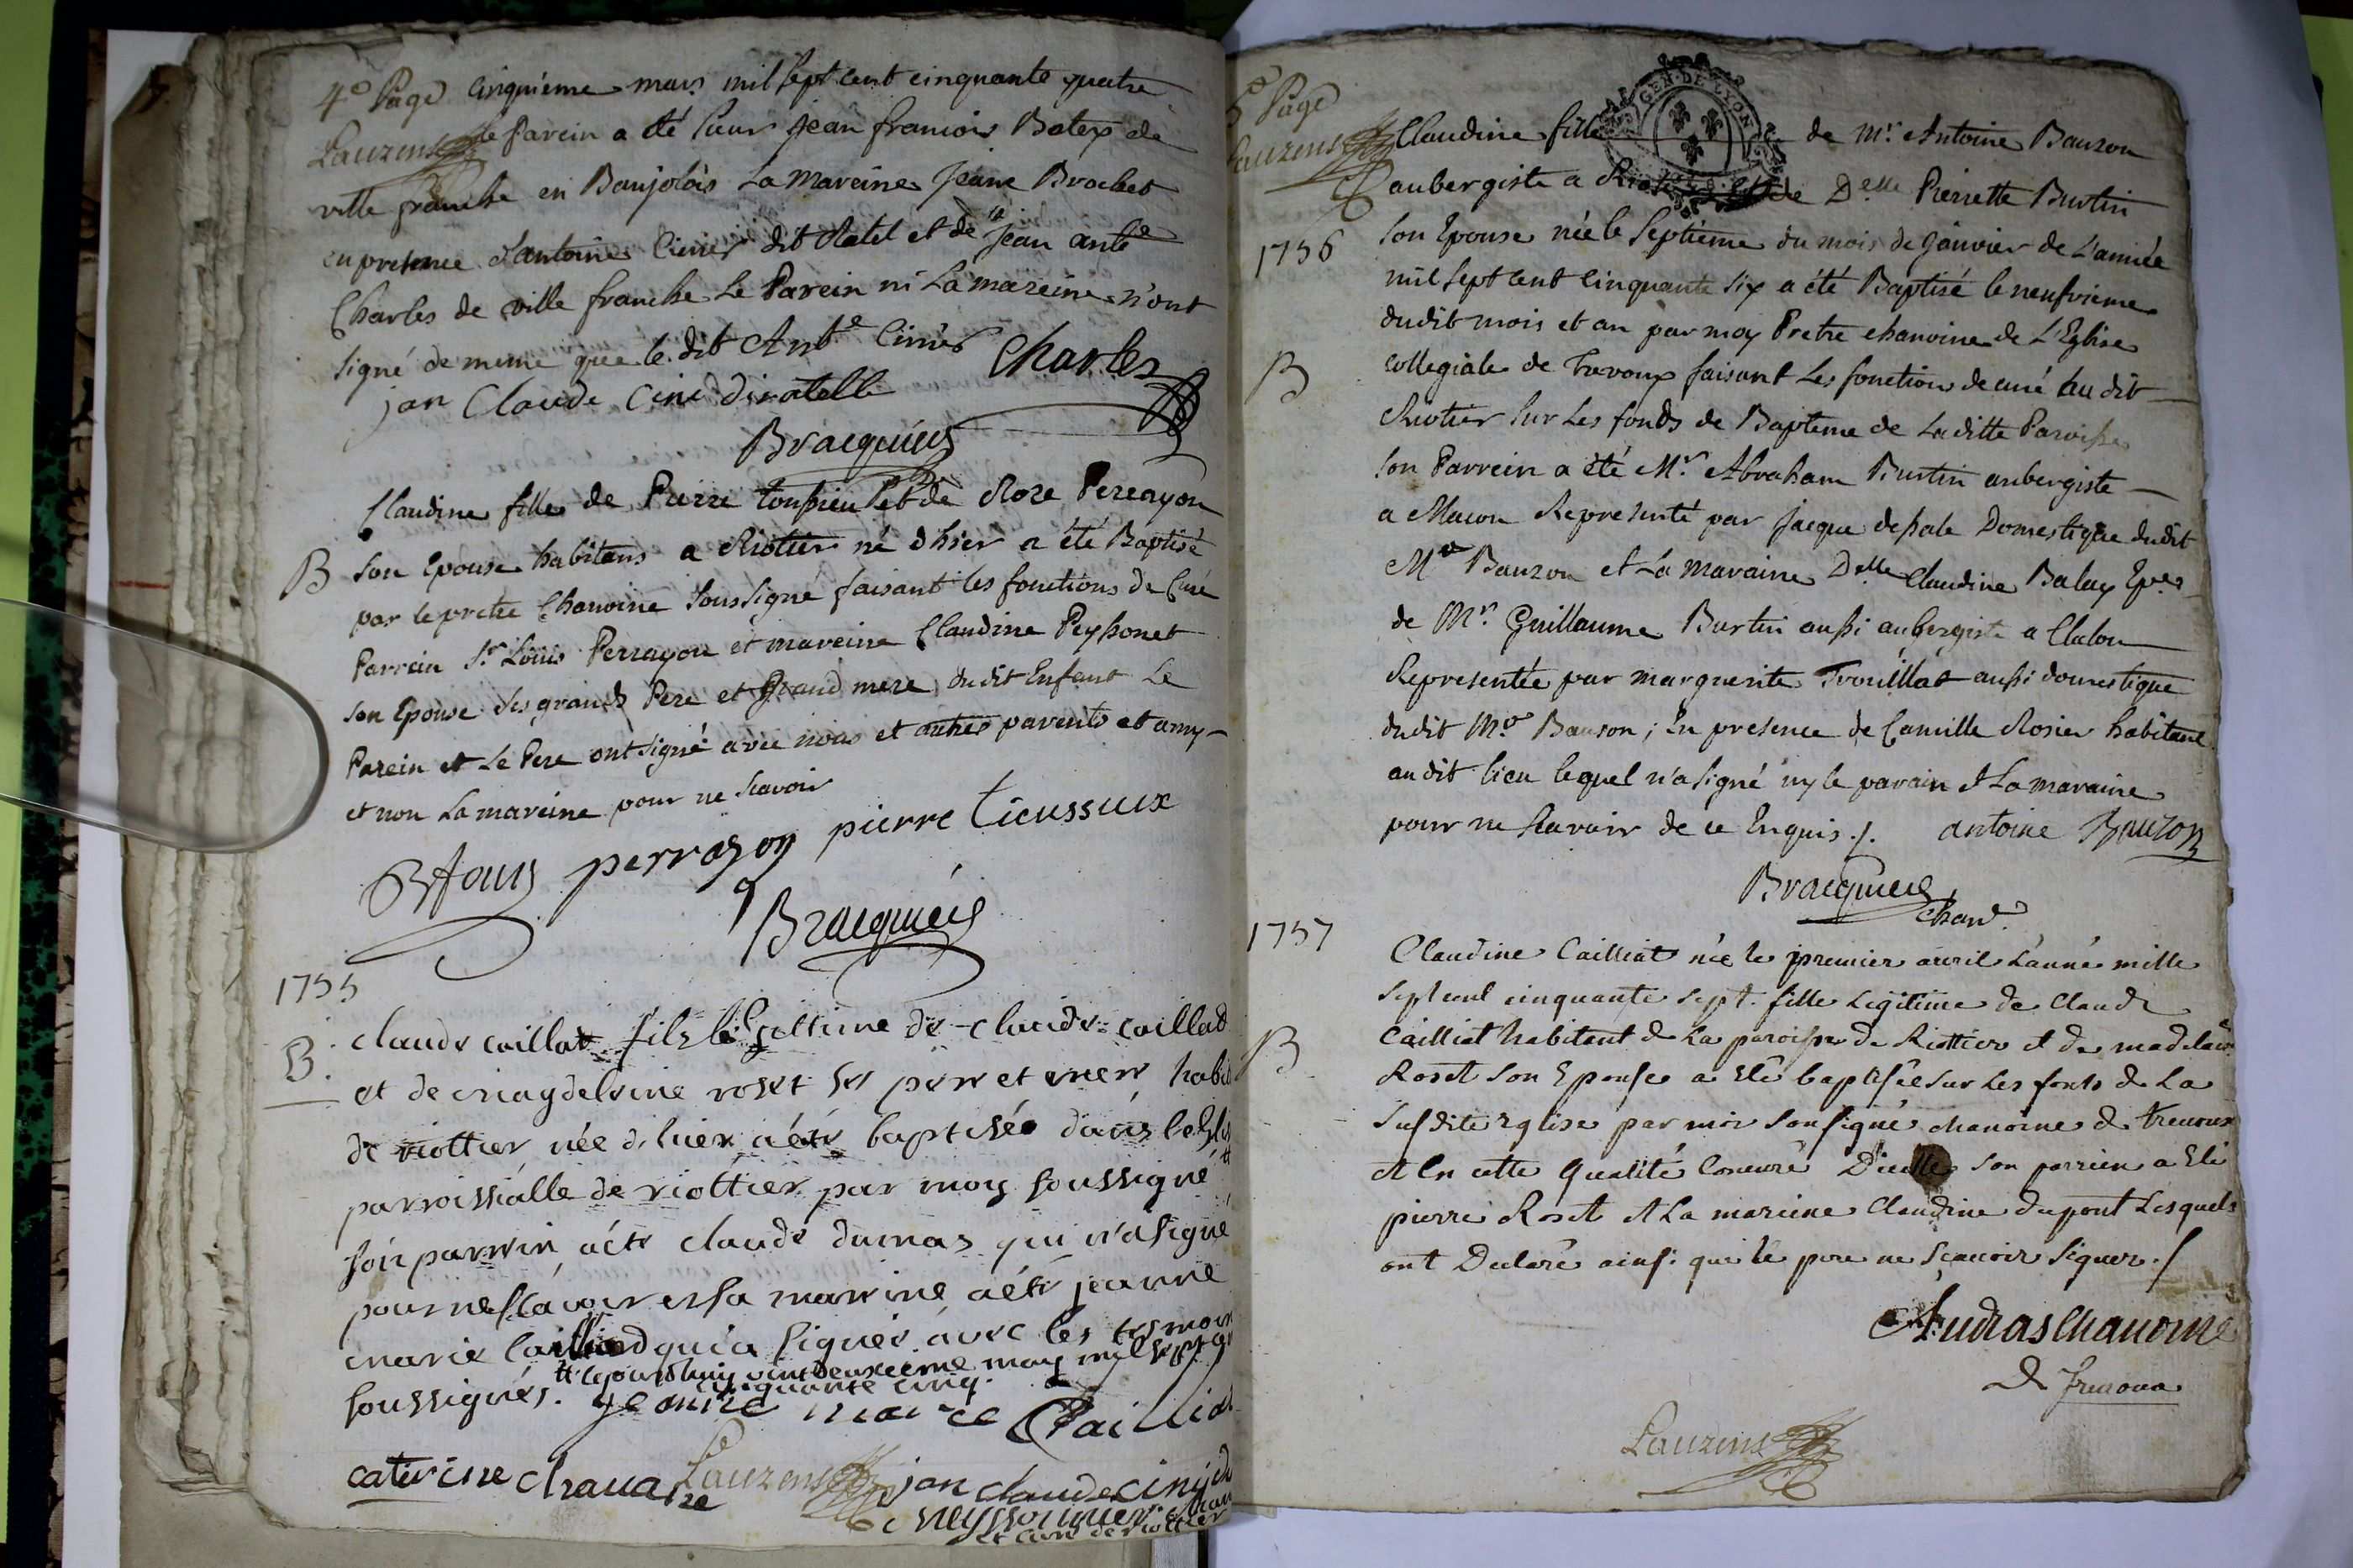 4e Page cinquième mars mil sept cent cinquante quatre
Lauzens le Parein a été sieur jean francois Batex de
ville franche en Baujolois La Mareine Jeane Brochet
en presence d'antoine Cinier dit Ratel et de jean ante
Charles de ville franche Le Parein ni La mareine n'ont
signé de meme que le dit Ante Cinier Charles
jan Claude Cini diratelle
Bracquieu
Claudine fille de Pierre et de Roze Peragon
B son Epouse habitans a Riotier né d'hier a été Baptisé
par le pretre Chanoine Soussigné faisant les fonctions de Curé
Parrain Sr Louis Perragon et mareine Claudine Peyssonet
son Epouse ses grands Pere et Grand mere dudit Enfant Le
Parein et Le Pere ont signé avec nous et autres parents et amy
et non La mareine pour ne scavoir
perragon pierre tieussieux
Bracquieu
1755
B. claude caillat fils légittime de claude caillad
et de magdeleine roset ses pere et mere habit
de riottier née d'hier a été baptisée dans l'Eglis
parroissialle de riottier par moy soussigné #
son parrein a été claude dumas qui n'a signé
pour ne sçavoir et sa marrine a été jeanne
marie Cailliad qui a signés avec les tesmoin
# cejourdhuy vint deuxieme may mil sept ce
cinquante cinq.
soussignés. Jeanne marie Cailliad
caterine chauane Lauzens jan claude cini di
neyssonnier
et curé de riottier
5e Page
Lauzens Claudine fille de Mr Antoine Bauzon
aubergiste a et de Delle Pierrette Burtin
1756 son Epouse née le septieme du mois de Janvier de L'année
mil sept cent cinquante six a été Baptisé le neufvieme
dudit mois et an par moy Pretre chanoine de L'Eglise
B collegiale de Trevoux faisant Les fonctions de curé au dit
Riotier sur Les fonds de Bapteme de Laditte Paroisse
son Parrein a été Mr Abraham Burtin aubergiste
a Macon Representé par jacque depale Domestique dudit
Mr Bauzon et La maraine Delle Claudine Balay Epse
de Mr Guillaume Burtin aussi aubergiste a Chalon
Representée par marguerite Trouillat aussi domestique
dudit Mr Bauzon ; En presence de Camille Rosier habitant
au dit lieu lequel n'a signé ny le parain et La maraine
pour ne scavoir de ce Enquis ./. antoine Bauzon
Bracquieu
chane
1757
Claudine Cailliat née le premier avril L'anné mille
sept cent cinquante sept. fille Legitime de Claude
B Cailliat habitant de La paroisse de Riottier et de madelaine
Roset son Epouse a Eté baptisée sur Les fonts de La
susdite Eglise par moi sousigné chanoine de trevoux
et En cette Qualité Concuré D'icelle son parrien a Eté
pierre Roset et La mareine Claudine dupont Lesquels
ont Declaré ainsi que le pere ne Sçavoir Signer ./
Audras Chanoine
De Trevoux
Lauzens